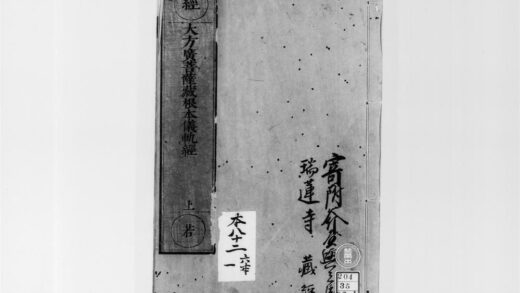 經
大方廣菩薩藏根本儀軌經
上
若
本八十二
六本
一
寄附
瑞蓮寺 藏經
204
35